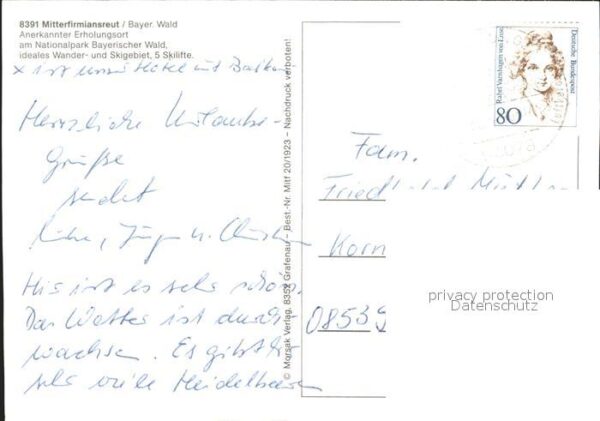 8391 Mitterfirmiansreut / Bayer. Wald
Anerkannter Erholungsort
am Nationalpark Bayerischer Wald,
ideales Wander- und Skigebiet, 5 Skilifte.
x ist unser Hotel mit Balkon
Herzliche Urlaubs-
grüße
sendet
Jürgen u.
Hier ist es sehr schön.
Das Wetter ist durch-
wachsen. Es gibt hier
sehr viele Heidelbeeren
© Morsak Verlag, 8352 Grafenau – Best.-Nr. Mitf 20/1923 – Nachdruck verboten!
Rahel Varnhagen von Ense
Deutsche Bundespost
80
Fam.
Korn
08539
privacy protection
Datenschutz